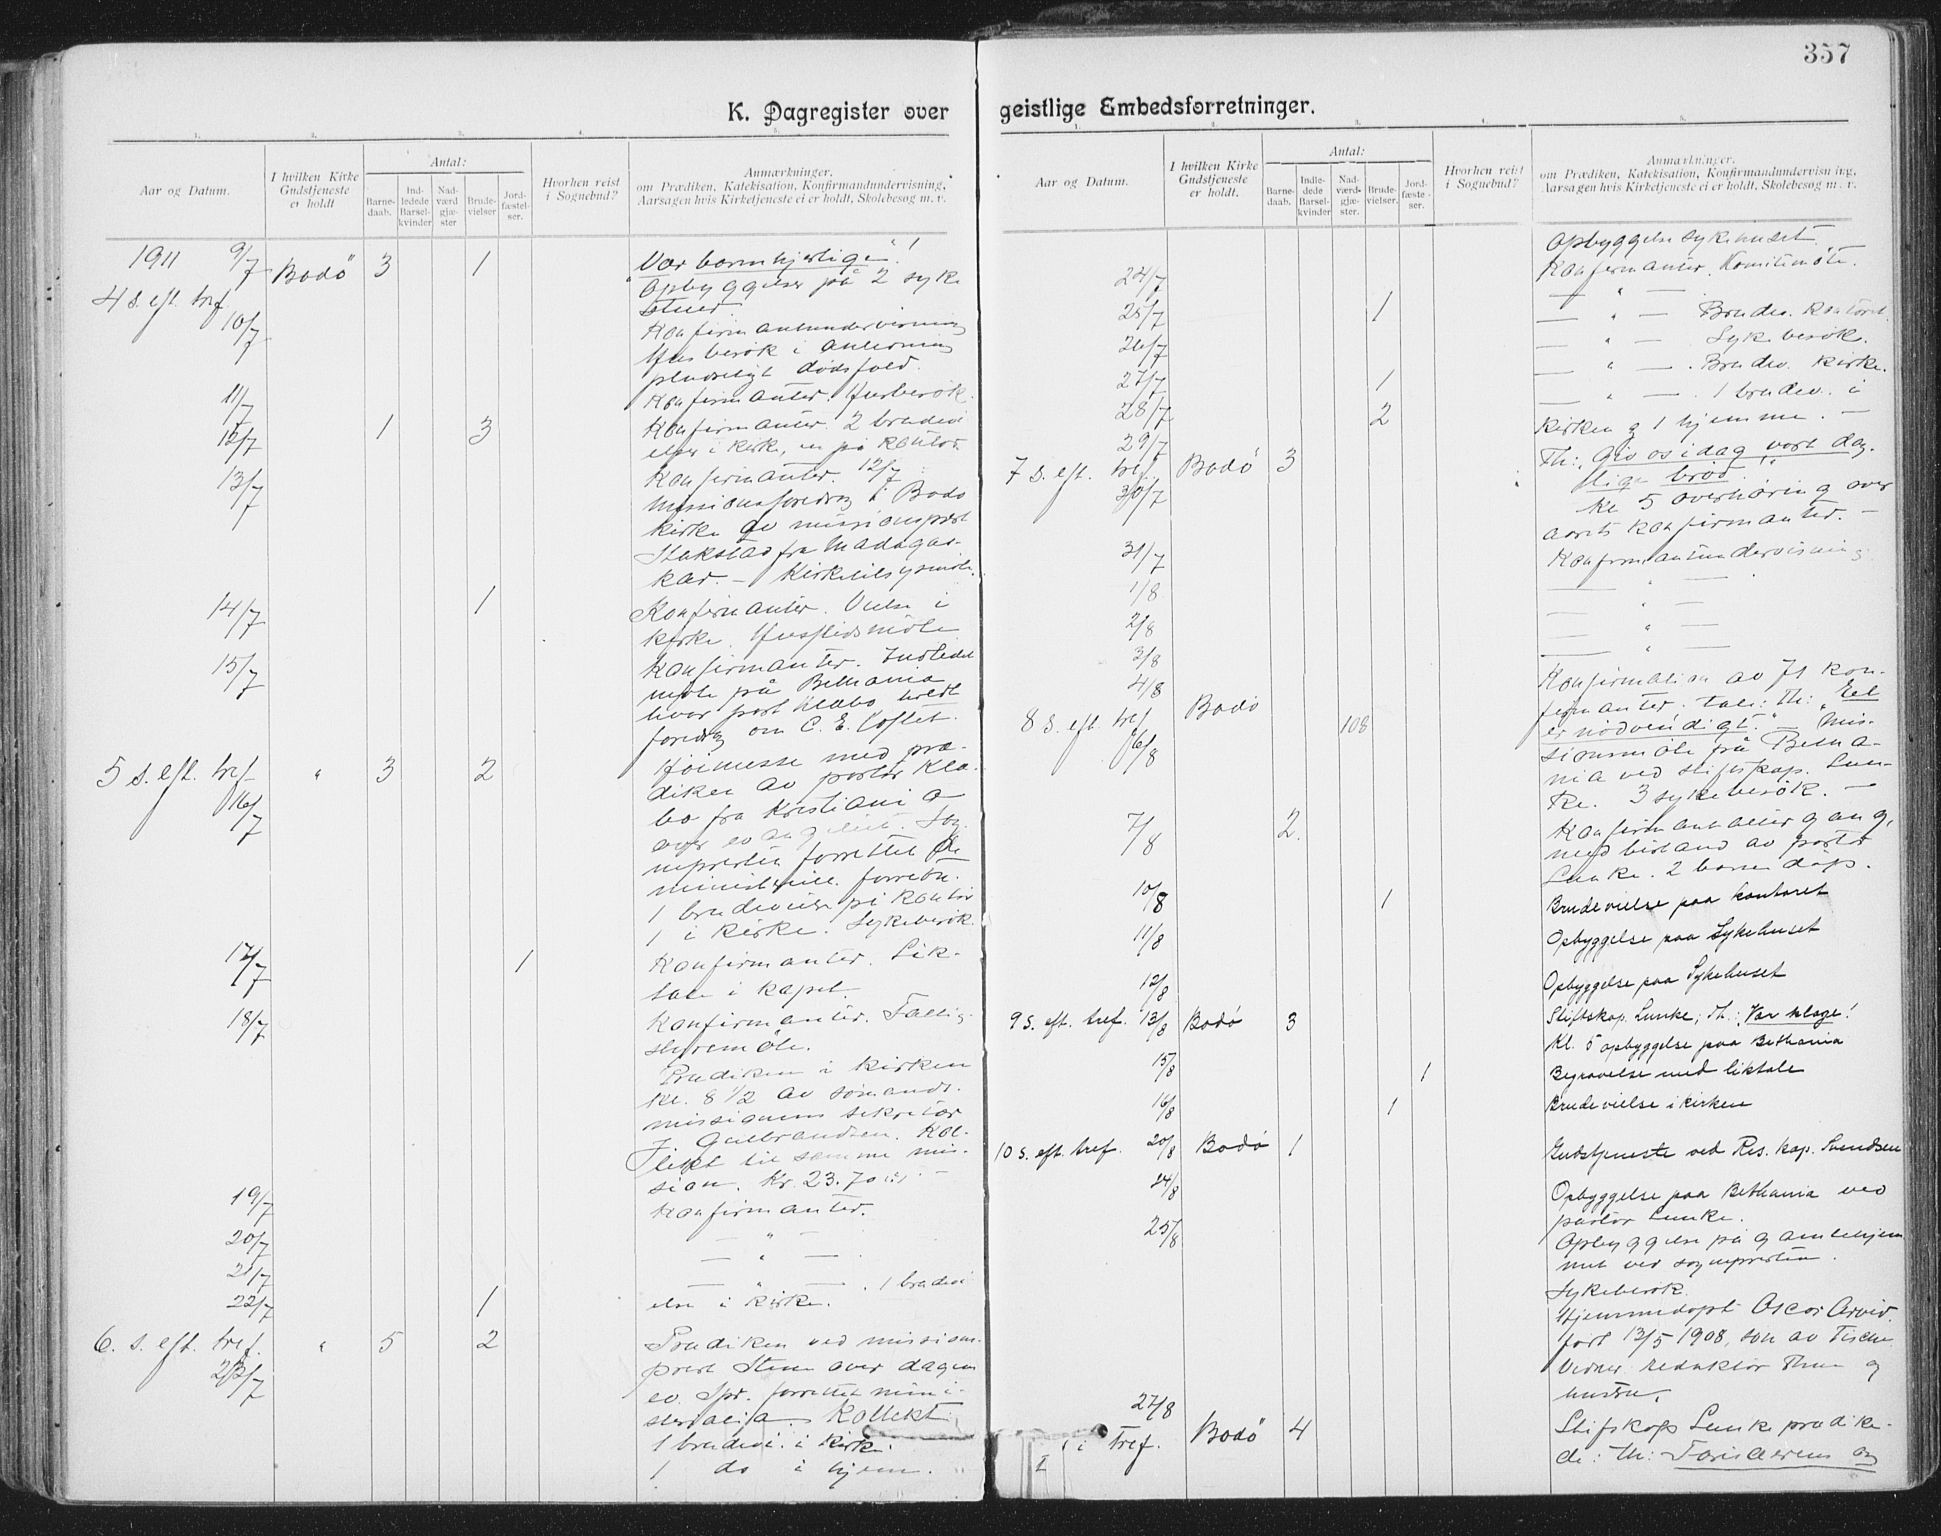 357
K. Dagregister over geistlige Embedsforretninger.
1. 2. 3. 4. 5.
Aar og Datum.
I hvilken Kirke Gudstjeneste er holdt
Antal:
Barnedaab.
Indledede Barselkvinder
Nadværdgjæster
Brudevielser
Jordfæstelser.
Hvorhen reist i Sognebud?
Anmærkninger.
om Prædiken, Katekisation, Konfirmandundervisning,
Aarsagen hvis Kirketjeneste ei er holdt, Skolebesøg m. v.
1911 9/7 Bodö 3 1 "Vær barmhjertige"!
4 s. eft. tref. Opbyggelser på 2 syke
stuer.
10/7 Konfirmantundervisning
Husbesök i anledning
pludseligt dödsfald.
11/7 Konfirmanter. Husbesök.
12/7 1 3 Konfirmanter. 2 brudevi
elser i kirke, en på kontor.
13/7 Konfirmanter. 12/7
missionsforedrag i Bodö
kirke av missionsprest
fra Madagas-
kar. - Kirketilsynsmöte.
14/7 1 Konfirmanter. Vielse i
kirke. Husflidsmöte
15/7 Konfirmanter.
möte på Bethania
hvor past. Klæbo holdt
foredrag om C. E. Loftet.
5 s. eft. tref. " 3 2 Höimesse med præ-
16/7 diken av pastor Klæ-
bo fra Kristiania
over evangeliet. Sog
nepresten forrettet de
ministerielle forretn.
1 brudevielse på kontor
1 i kirke. Sykebesök.
17/7 1 Konfirmanter. Lik-
tale i kapel.
18/7 Konfirmanter. Fattig-
styremöte.
Prædiken i kirken
kl. 8 1/2 av sömands-
missionens sekretær
J. Gulbrandsen. Kol-
lekt til samme mis-
sion. Kr. 23.70
19/7 Konfirmanter.
20/7 — " —
21/7 — " —
22/7 1 — " — . 1 brudevi
else i kirke.
6. s. eft. tref. " 5 2 Prædiken ved mission-
23/7 prest Steen over dagens
ev. Spr. forrettet mini-
sterialia. Kollekt.
1 brudevi. i kirke.
1 do i hjem.
1. 2. 3. 4. 5.
Aar og Datum.
I hvilken Kirke Gudstjeneste er holdt.
Antal:
Barnedaab.
Indledede Barselkvinder
Nadværdgjæster.
Brudevielser.
Jordfæstelser.
Hvorhen reist i Sognebud?
Anmærkninger.
om Prædiken, Katekisation, Konfirmandundervisning,
Aarsagen hvis Kirketjeneste ei er holdt, Skolebesøg m. v.
Opbyggelse sykehuset
24/7 Konfirmanter. Komitemöte.
25/7 1 — " — Brudev. kontoret.
26/7 — " — Sykebesök.
27/7 1 — " — . Brudev. kirke.
28/7 2 — " — . 1 brudev. i
kirken og 1 hjemme. —
29/7
7 s. eft. tref. 30/7 Bodö 3 Th: "Giv os idag vort dag-
lige bröd".
Kl. 5 overhöring over
aarets konfirmanter. —
31/7 Konfirmantundervisning
1/8 — " —
2/8 — " —
3/8 — " —
4/8
8 s. eft. tref. 6/8 Bodö 108 Konfirmation av 71 kon-
firmanter. tale: Th: "Eet
er nödvendigt." — Mis-
sionsmöte på Betha-
nia ved stiftskap. Lun-
ke. 3 sykebesök. —
7/8 2. Konfirmantaltergang,
med bistand av pastor
Lunke. 2 barnedåp.
10/8 1 Brudevielse paa kontoret
11/8 Opbyggelse paa Sykehuset
12/8 Opbyggelse paa Sykehuset
9 s. eft. tref. 13/8 Bodö 3 Stiftskap. Lunke; Th.: Var kloge!
Kl. 5 opbyggelse paa Bethania
15/8 1 Begravelse med liktale
16/8 1 Brudevielse i kirken
10 s. eft. tref. 20/8 Bodö 1 Gudstjeneste ved Res. kap. Svendsen
24/8 Opbyggelse paa Bethania ved
pastor Lunke.
25/8 Opbyggelse på gamlehjem
met ved sognepresten.
Sykebesök.
Hjemmedöpt Oscar Arvid
født 13/5 1908, sön av
Verner redaktör og
hustru.
27/8
Tref. Bodö 4 Stifskap Lunke prædike-
de: Th: Farisæeren og